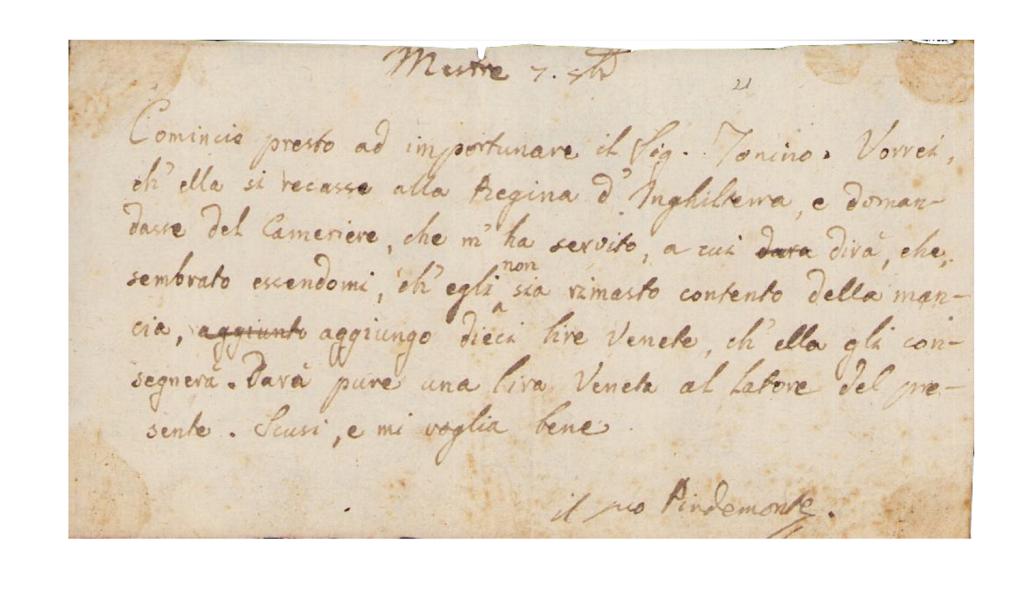 Mestre 7.
Comincio presto ad importunare il Sig. Tonino. Vorrei,
ch' ella si recasse alla Regina d' Inghilterra, e doman-
dasse del Cameriere, che m' ha servito, a cui dara dirà, che,
sembrato essendomi, ch' egli non sia rimasto contento della man-
cia, aggiunto aggiungo dieci lire Venete, ch' ella gli con-
segnerà. Darà pure una lira Veneta al latore del pre-
sente. Scusi, e mi voglia bene
il suo Pindemonte.